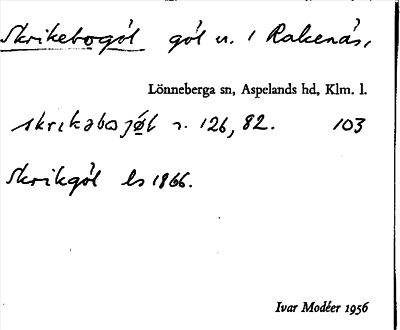 Skrikebogöl göl n. i Rakenäs,
Lönneberga sn, Aspelands hd, Klm. l.
skrikabojǿl s. 126, 82. 103
Skrikgöl ls 1866.
Ivar Modéer 1956